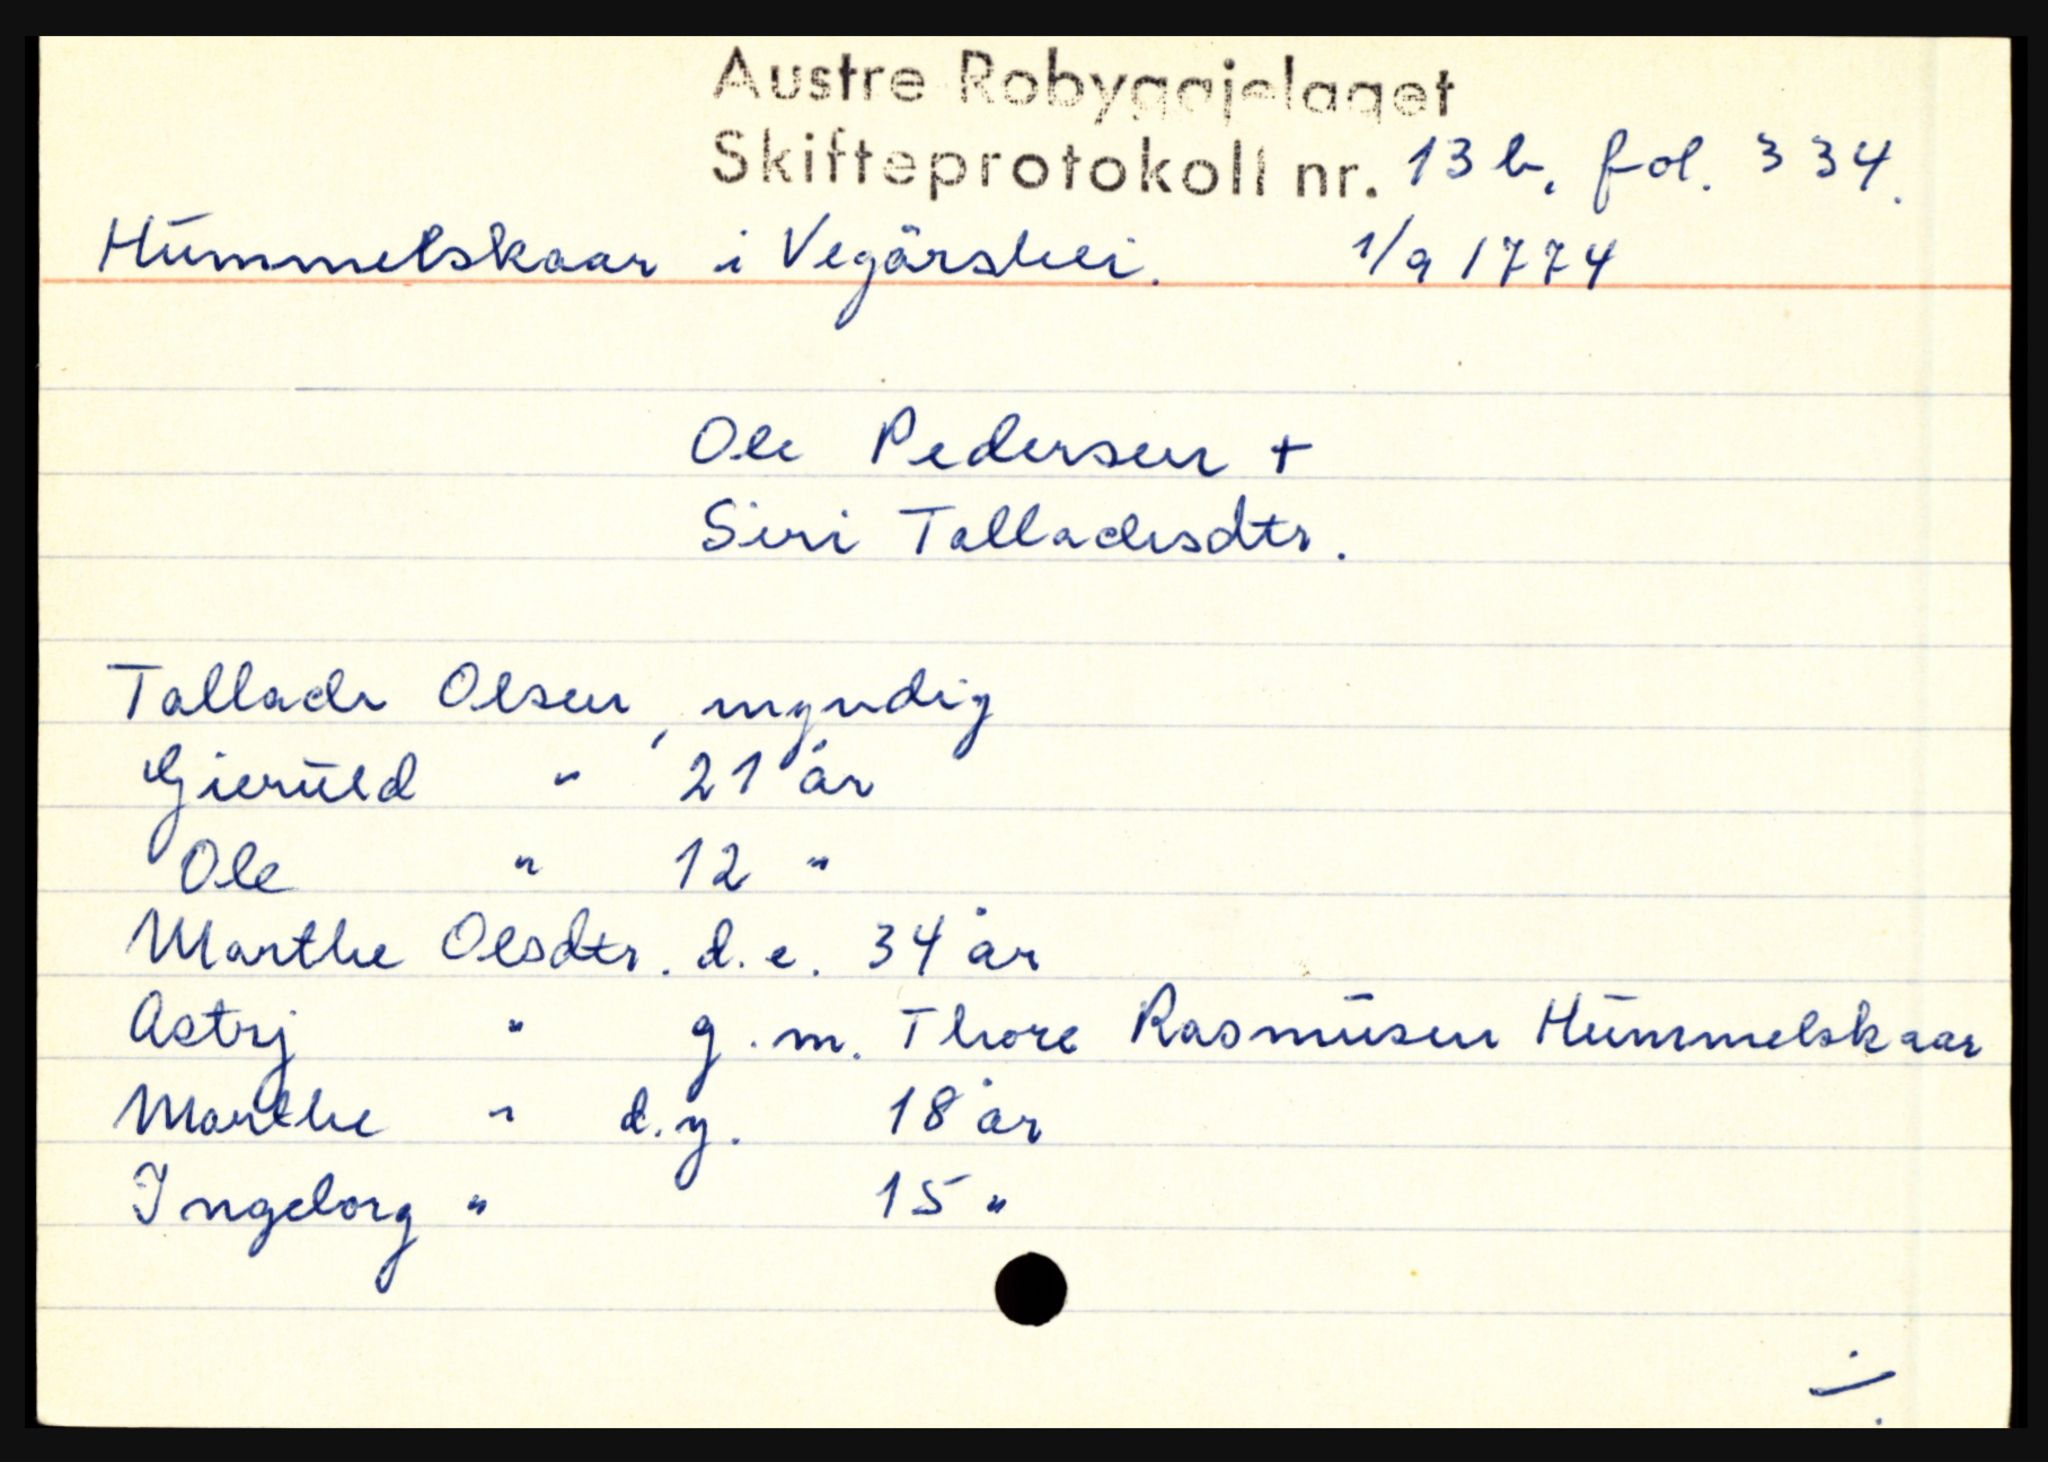 Austre Robyggjelaget
Skifteprotokoll nr. 13 b, fol. 334.
Hummelskaar i Vegårshei. 1/9 1774
Ole Pedersen +
Siri Talladsdtr.
Tallach Olsen, myndig
Gieruld " 21 år
Ole " 12 "
Marthe Olsdtr. d.e. 34 år
Astrj " g.m. Thore Rasmusen Hummelskaar
Marthe " d.y. 18 år
Ingeborg " 15 "